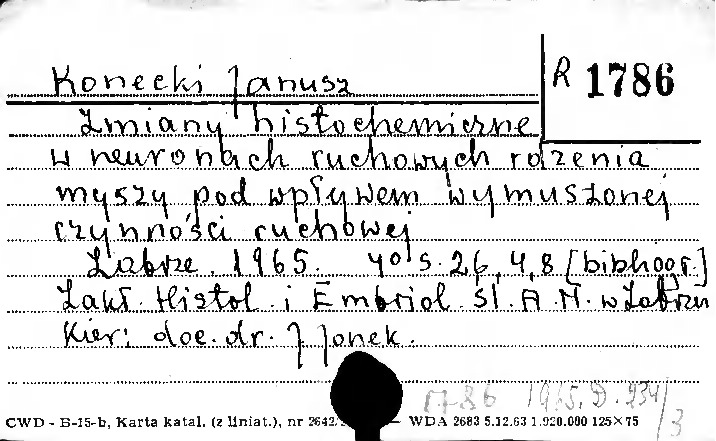 Konecki Janusz
R 1786
Zmiany histochemiczne
w neuronach ruchowych rdzenia
myszy pod wpływem wymuszonej
czynności ruchowej
Zabrze. 1965. 4° s. 26, 4, 8 [bibliogr.]
Zakł. Histol. i Embriol. Śl. A. M. w Zabrzu
Kier: doc. dr. J Jonek.
1786 1965. D. 934/3
CWD - B-15-b, Karta katal. (z liniat.), nr 2642/ — WDA 2683 5.12.63 1.920.000 125×75